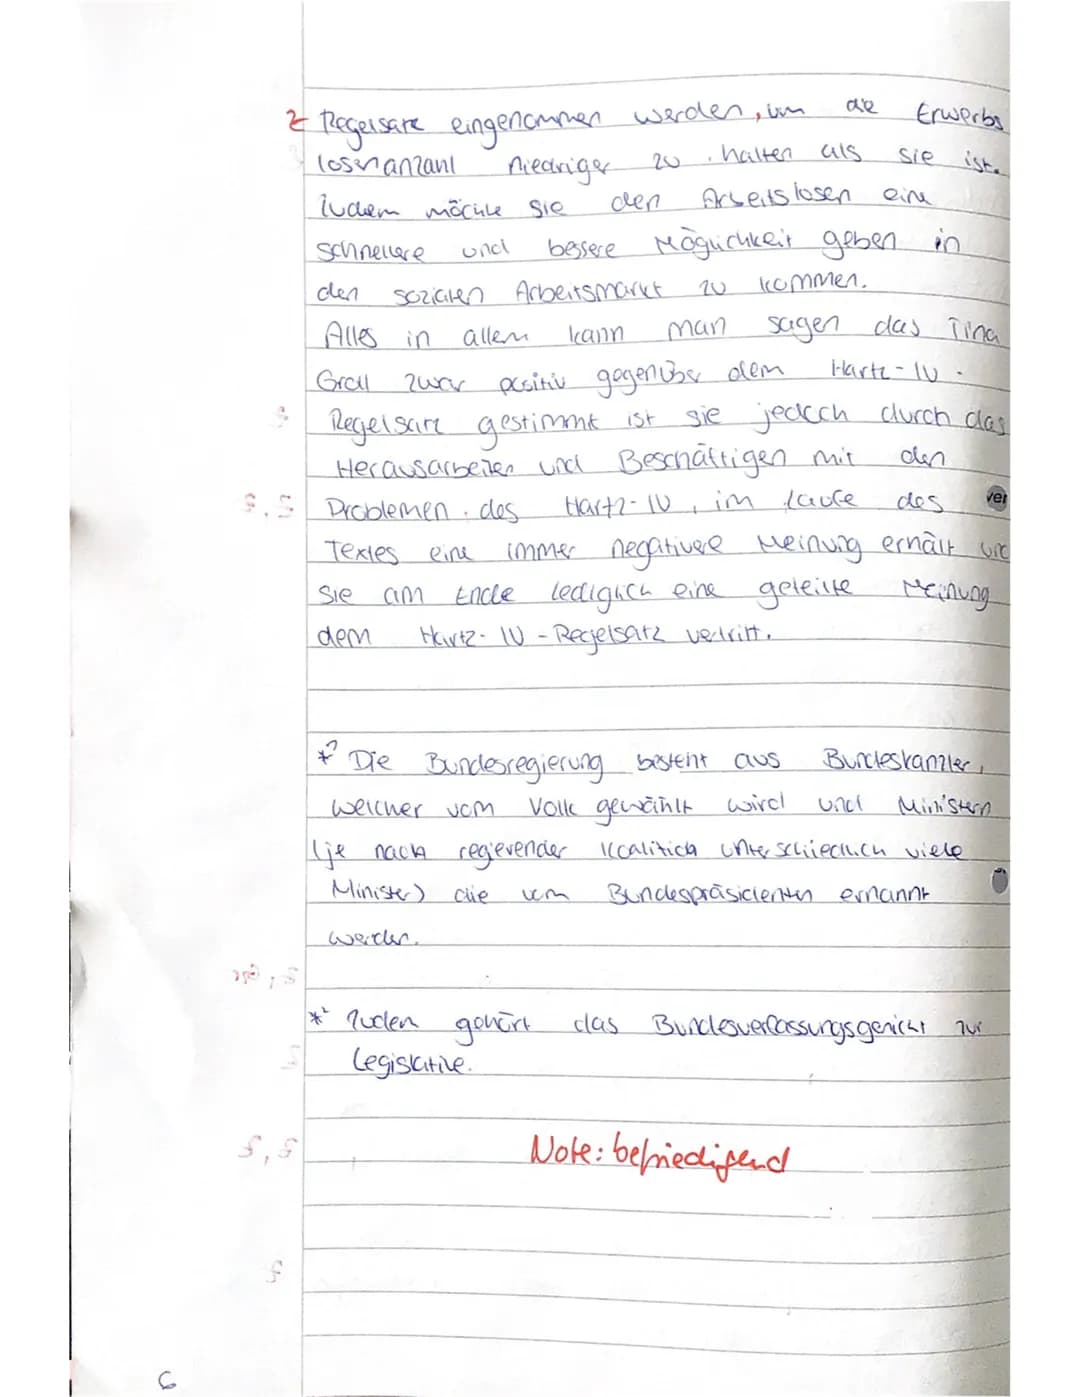 Z Regelsatz eingenommen werden, um die Erwerbs
losenanzahl niedriger zu halten als sie ist.
Zudem möchte sie den Arbeitslosen eine
schnellere und bessere Möglichkeit geben in
den sozialen Arbeitsmarkt zu kommen.
Alles in allem kann man sagen das Tina
Groll zwar positiv gegenüber dem Hartz-IV-
Regelsatz gestimmt ist sie jedoch durch das
Herausarbeiten und Beschäftigen mit den
Problemen des Hartz-IV, im Laufe des
ver
Textes eine immer negativere Meinung erhält und
sie am Ende lediglich eine geteilte Meinung
dem Hartz-IV-Regelsatz vertritt.
*² Die Bundesregierung besteht aus Bundeskanzler,
welcher vom Volk gewählt wird und Ministern
(je nach regierender Koalition unterschiedlich viele
Minister) die vom Bundespräsidenten ernannt
werden.
*² Zudem gehört das Bundesverfassungsgericht zur
Legislative.
Note: befriedigend
6